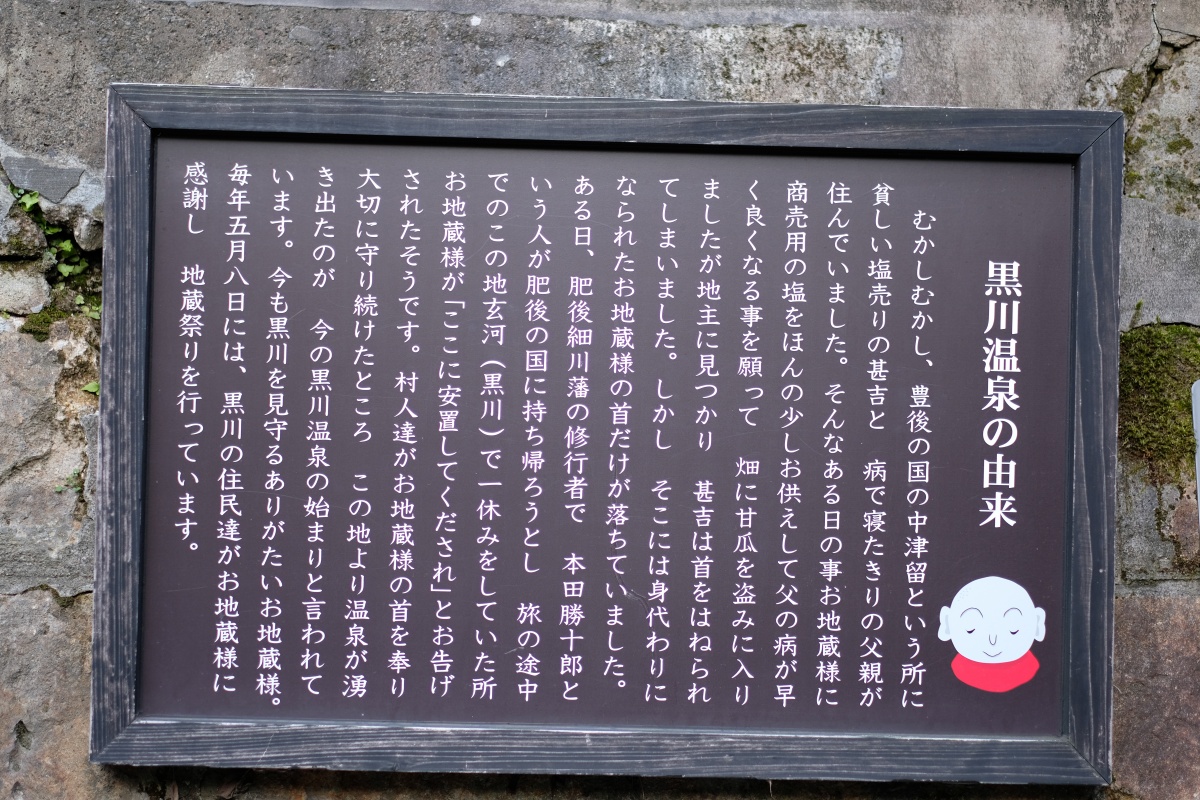 黒川温泉の由来
むかしむかし、豊後の国の中津留という所に
貧しい塩売りの甚吉と　病で寝たきりの父親が
住んでいました。そんなある日の事お地蔵様に
商売用の塩をほんの少しお供えして父の病が早
く良くなる事を願って　畑に甘瓜を盗みに入り
ましたが地主に見つかり　甚吉は首をはねられ
てしまいました。しかし　そこには身代わりに
なられたお地蔵様の首だけが落ちていました。
ある日、肥後細川藩の修行者で　本田勝十郎と
いう人が肥後の国に持ち帰ろうとし　旅の途中
でのこの地玄河（黒川）で一休みをしていた所
お地蔵様が「ここに安置してくだされ」とお告げ
されたそうです。村人達がお地蔵様の首を奉り
大切に守り続けたところ　この地より温泉が湧
き出たのが　今の黒川温泉の始まりと言われて
います。今も黒川を見守るありがたいお地蔵様。
毎年五月八日には、黒川の住民達がお地蔵様に
感謝し　地蔵祭りを行っています。